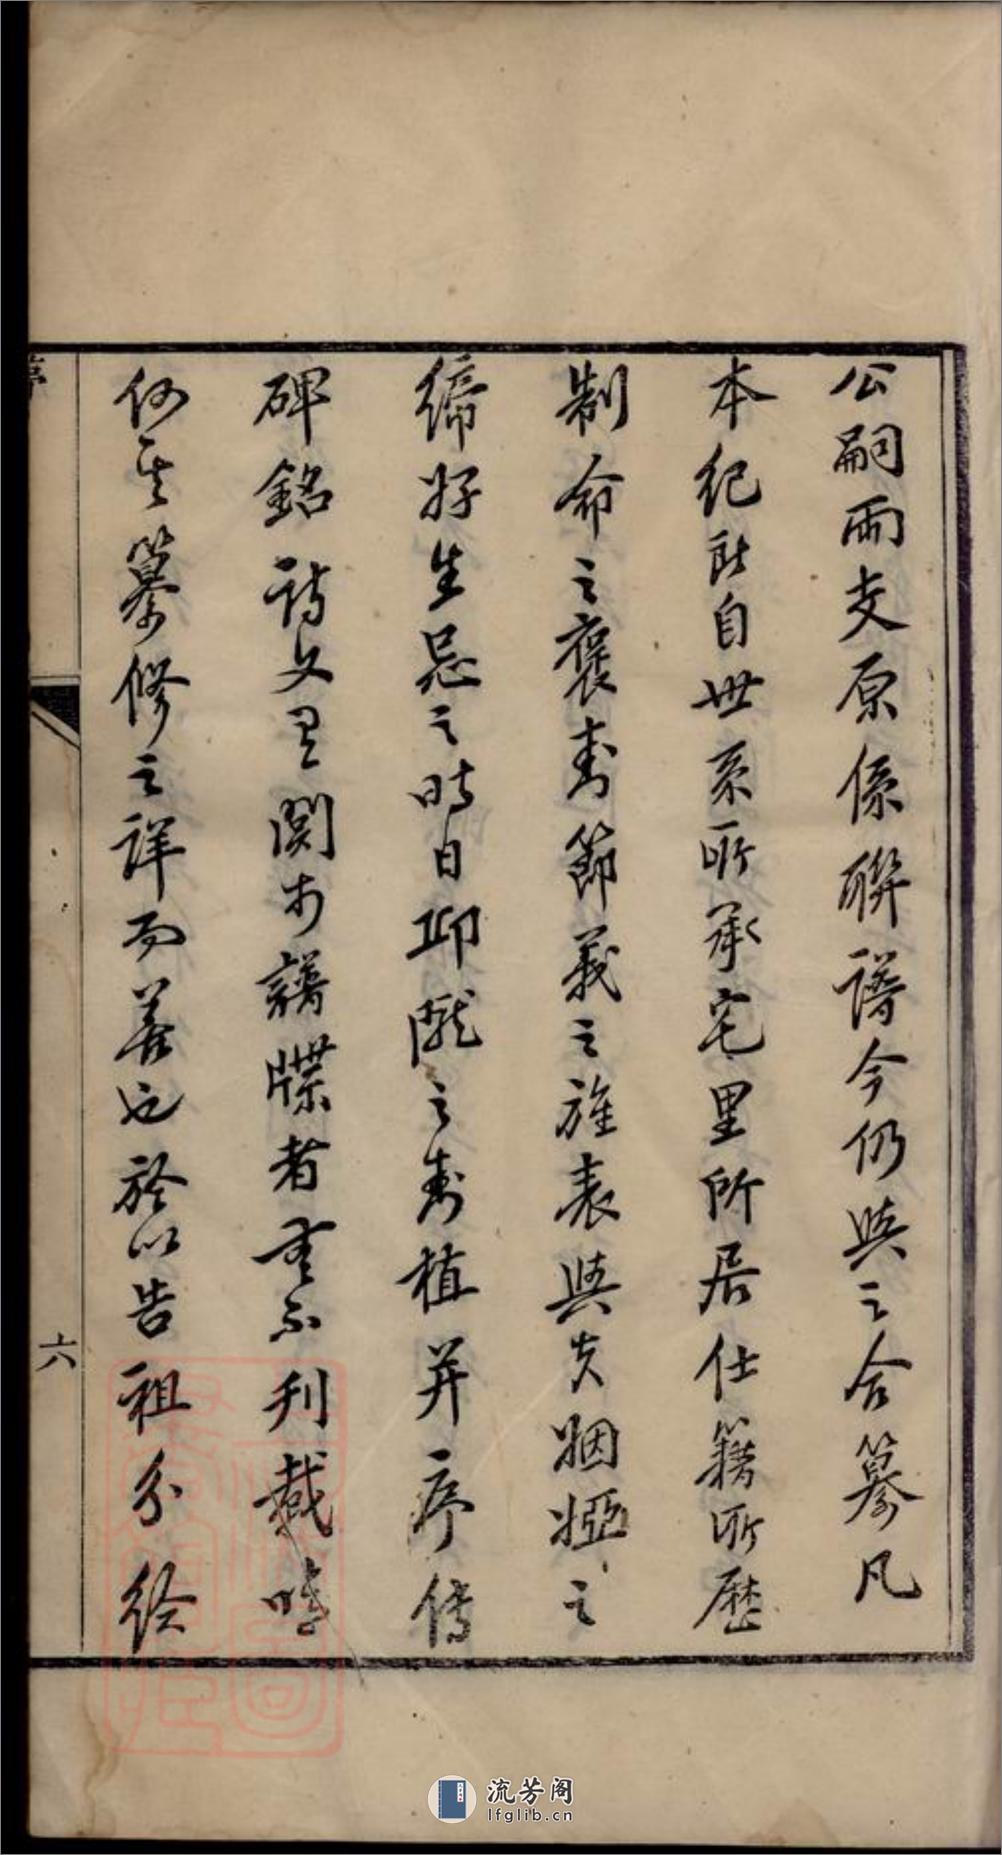 公嗣兩支原係聯譜今仍與之合纂凡
本紀所自世系所承宅里所居仕籍所歷
制命之褒封節義之旌表與夫姻婭之
締好生忌之時日邱隴之封植并序傳
碑銘詩文有關於譜牒者無不刊載嘻
何其纂修之詳而善也於以告祖分給
序
六
流芳阁
lfglib.cn